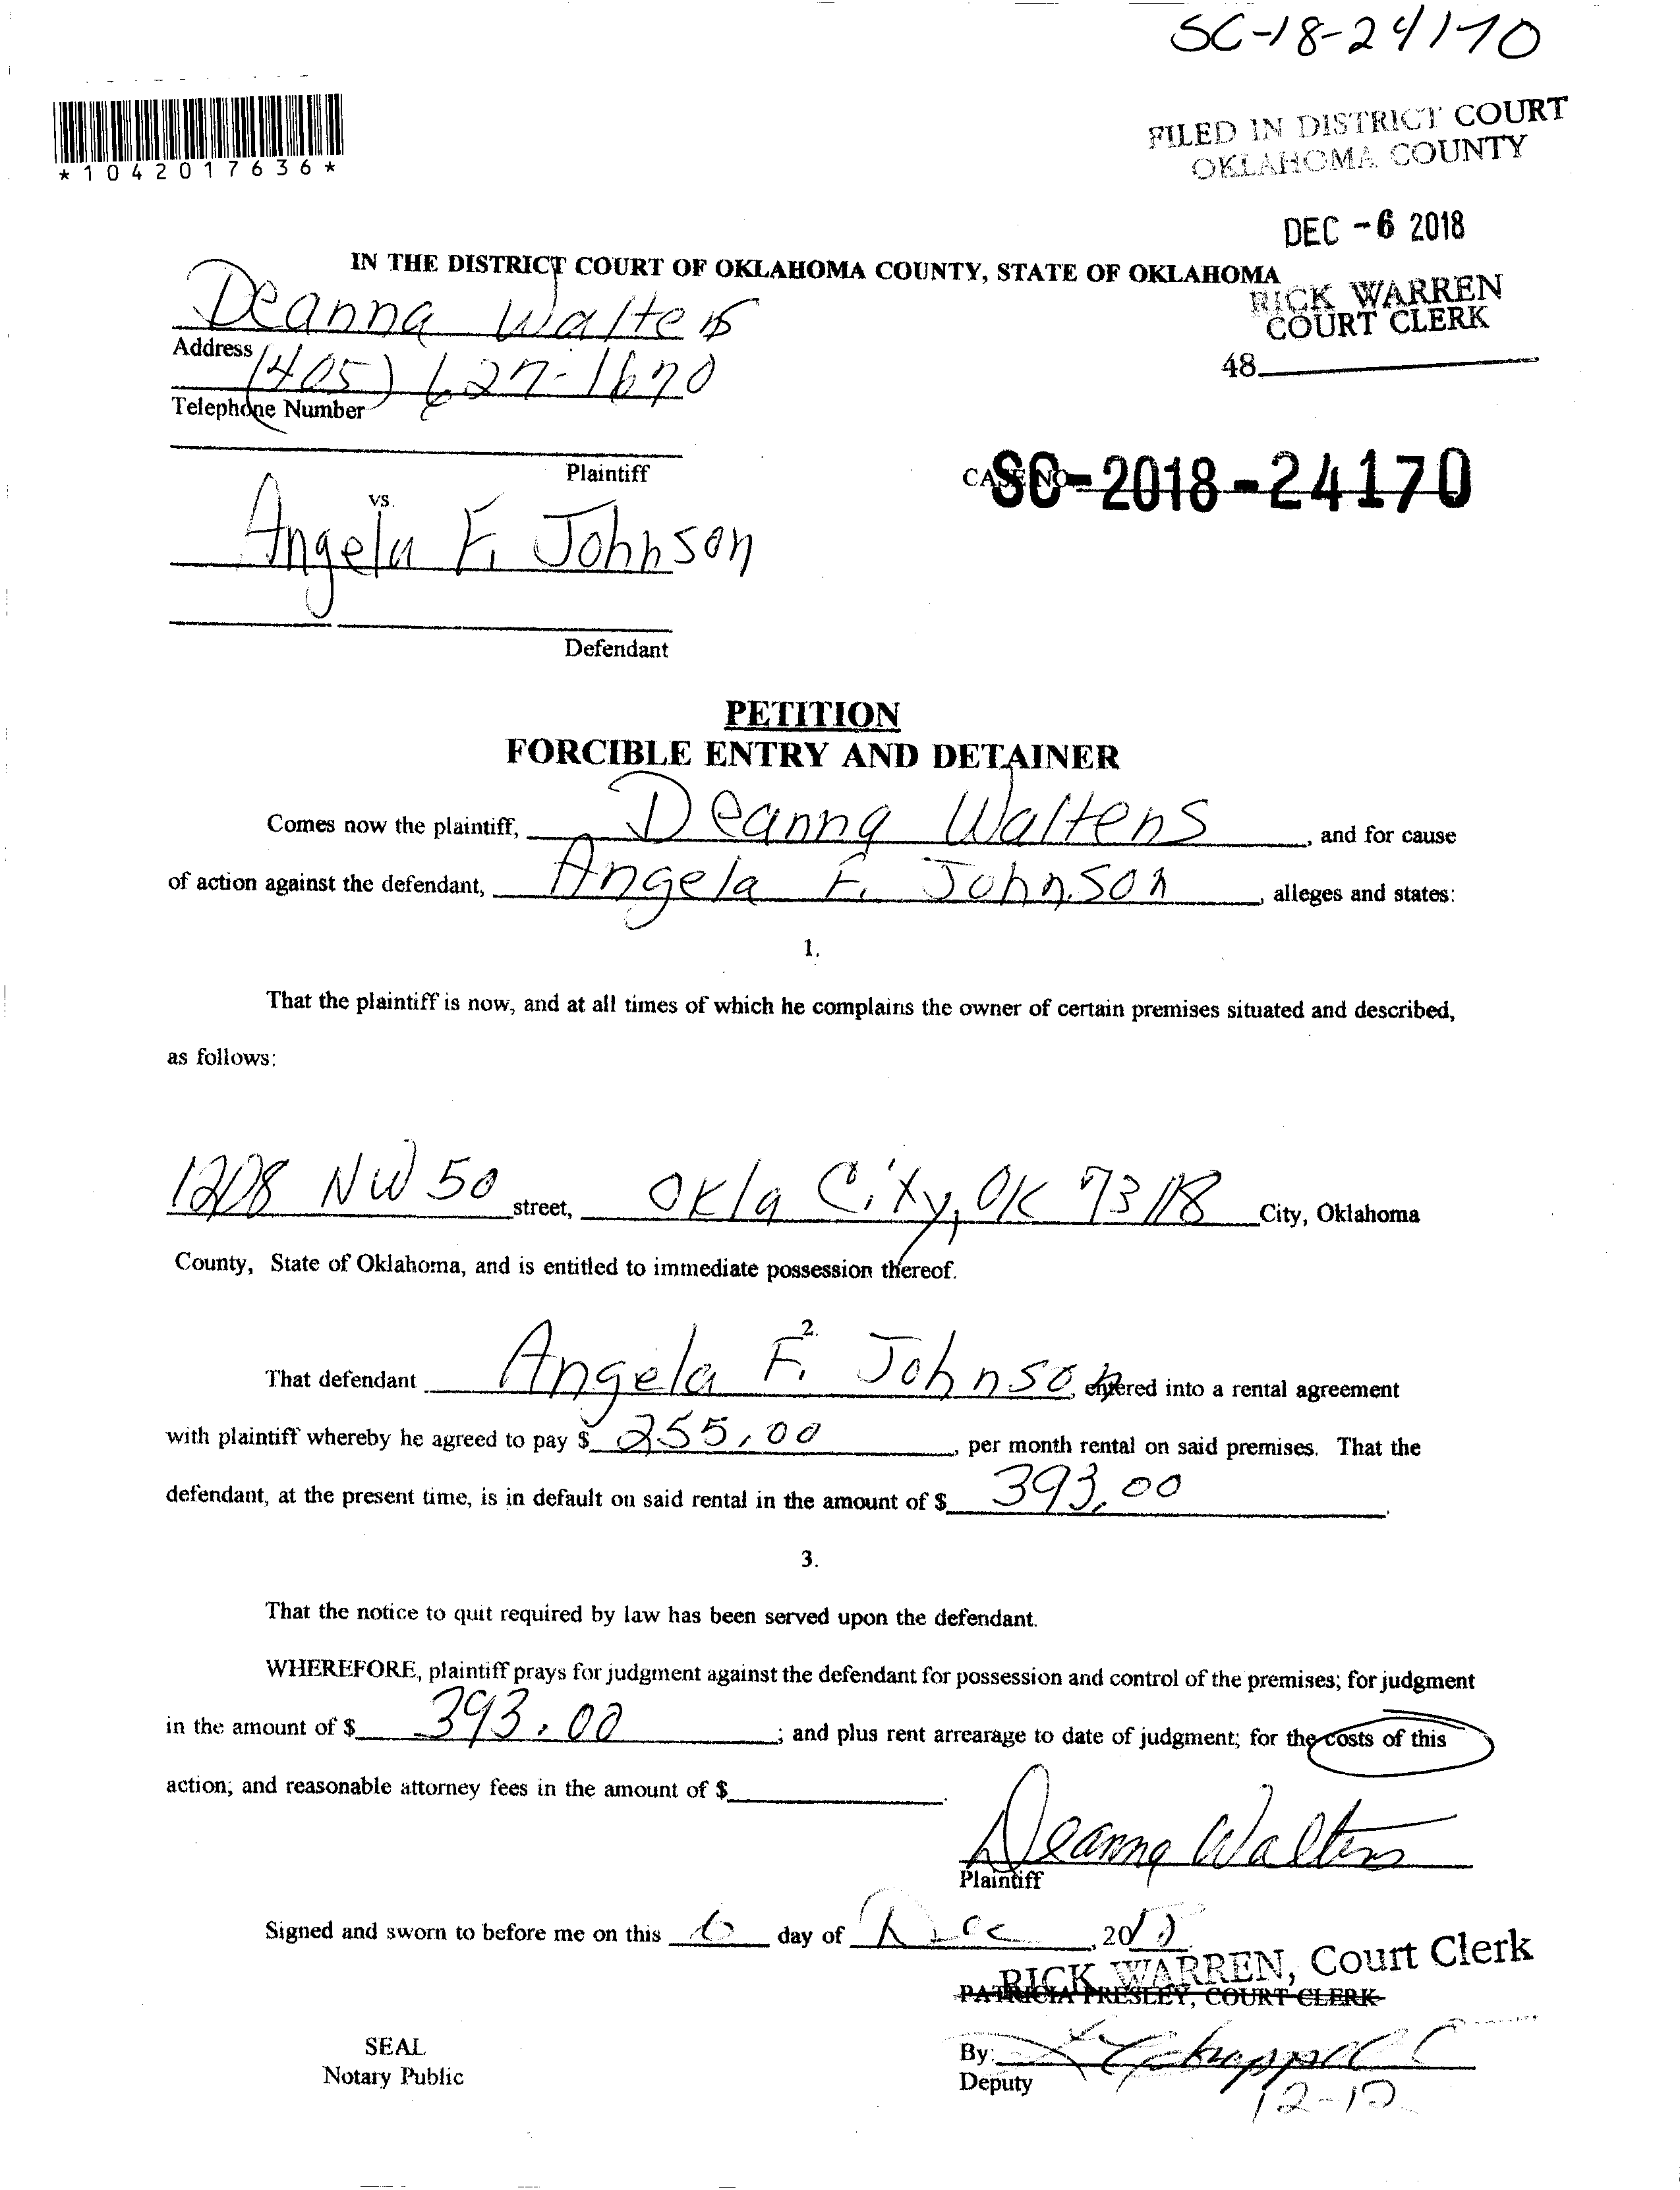 SC-18-24170
*1042017636*
FILED IN DISTRICT COURT
OKLAHOMA COUNTY
DEC -6 2018
IN THE DISTRICT COURT OF OKLAHOMA COUNTY, STATE OF OKLAHOMA
RICK WARREN
COURT CLERK
48
Deanna Walters
Address
(405) 627-1670
Telephone Number
Plaintiff
CASE NO SC-2018-24170
vs.
Angela F. Johnson
Defendant
PETITION
FORCIBLE ENTRY AND DETAINER
Comes now the plaintiff, Deanna Walters, and for cause
of action against the defendant, Angela F. Johnson, alleges and states:
1.
That the plaintiff is now, and at all times of which he complains the owner of certain premises situated and described,
as follows:
1208 NW 50 street, Okla City, OK 73118 City, Oklahoma
County, State of Oklahoma, and is entitled to immediate possession thereof.
2.
That defendant Angela F. Johnson, entered into a rental agreement
with plaintiff whereby he agreed to pay $ 255.00, per month rental on said premises. That the
defendant, at the present time, is in default on said rental in the amount of $ 393.00.
3.
That the notice to quit required by law has been served upon the defendant.
WHEREFORE, plaintiff prays for judgment against the defendant for possession and control of the premises; for judgment
in the amount of $ 393.00; and plus rent arrearage to date of judgment; for the costs of this
action; and reasonable attorney fees in the amount of $.
Deanna Walters
Plaintiff
Signed and sworn to before me on this 6 day of Dec, 20
RICK WARREN, Court Clerk
PATRICIA PRESLEY, COURT CLERK
SEAL
Notary Public
By:
Deputy
12-12